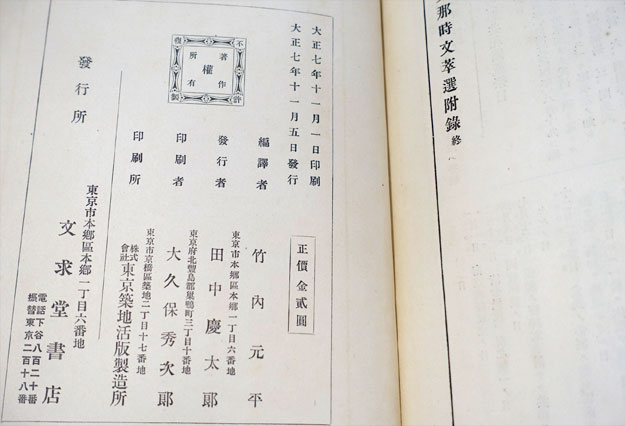 那時文萃選附錄 終
大正七年十一月一日印刷
大正七年十一月五日發行
不許複製
著作權所有
正價金貳圓
編譯者
東京市本鄉區本鄉一丁目六番地
竹內元平
發行者
東京府北豐島郡巢鴨町三丁目十番地
田中慶太郎
印刷者
東京市京橋區築地二丁目十七番地
大久保秀次郎
印刷所
株式會社東京築地活版製造所
發行所
東京市本鄉區本鄉一丁目六番地
文求堂書店
電話下谷八百二十番
振替東京二百十八番